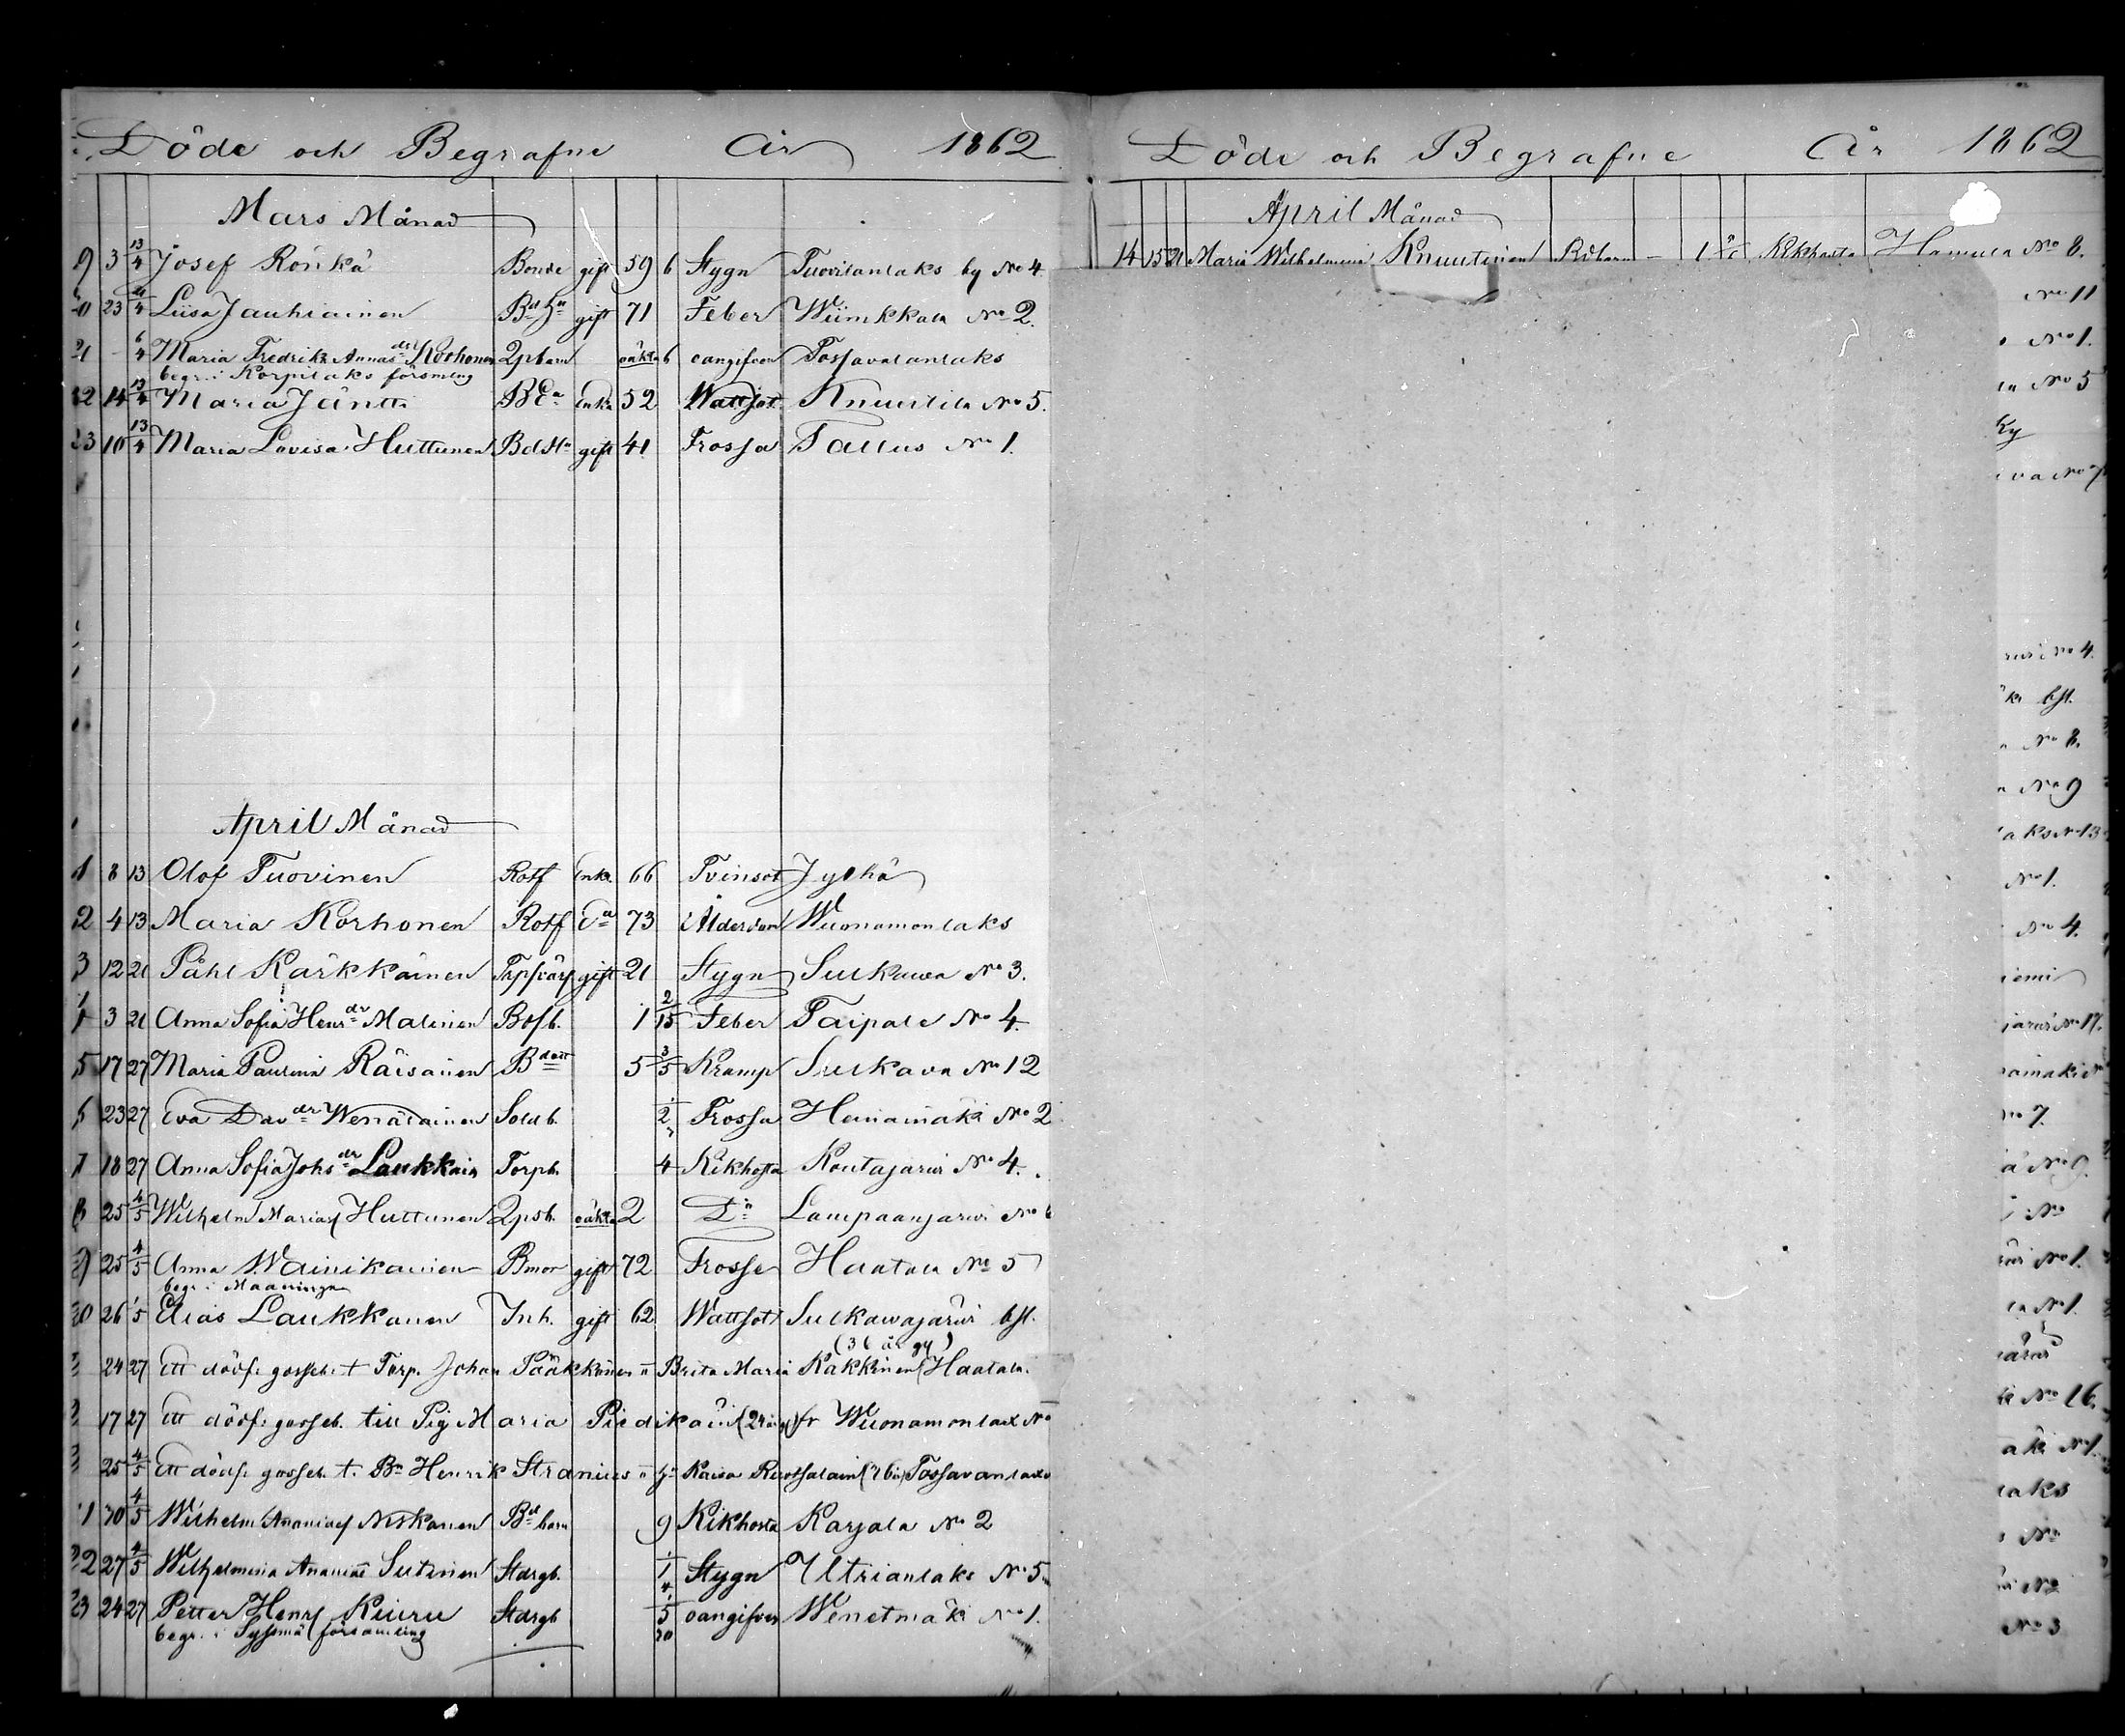 Döde och Begrafne År 1862
Mars Månad
19 3 13/4 Josef Rönkä Bonde gift 59 6 Stygn Tuovilanlaks by No 4.
20 23 /4 Liisa Jauhiainen Bd Hu gift 71 Feber Wiinikkala No 2.
21 - 6/4 Maria Fredrika Annas dr Korhonen Qpbarn oäkta 6 oangifven Tossavalanlaks
begr. i Korpilaks församling
22 14 13/4 Maria Jäntti BEa Enka 52 Wattsot Knuutila No 5.
23 10 13/4 Maria Lovisa Huttunen BdHu gift 41 Frossa Tallus No 1.
April Månad
1 8 13 Olof Tuovinen Rotf Enkl. 66 Tvinsot Jylhä
2 4 13 Maria Korhonen Rotf Ea 73 Ålderdom Wuonamonlaks
3 12 21 Påhl Karkkäinen gift 21 Stygn Sulkawa No 3.
4 3 21 Anna Sofia Henr dr Malinen Bosb. 1 2/15 Feber Taipale No 4.
5 17 27 Maria Paulina Räisänen Bdott 5 3/5 Kramp Sulkava No 12
6 23 27 Eva Dav dr Wenäläinen Soldb. 2 Frossa Heinämäki No 2
7 18 27 Anna Sofia Johs dr Laukkain Torpb. 4 Kikhosta Koutajärwi No 4.
8 25 4/5 Wilhelm Marias Huttunen Qpsb. oäkta 2 Do Lampaanjärwi No
9 25 4/5 Anna Wainikainen Bmor gift 72 Frossa Haatala No 5
begr. i Maaninga
10 26 /5 Elias Laukkanen Inh. gift 62 Wattsot Sulkawajärwi bst.
(36 år gl)
24 27 Ett dödf. gosseb. t Torp. Johan Pääkkönen o Brita Maria Kakkinen Haatala.
17 27 Ett dödf. gosseb. till Pig Maria Piedikäin (24 år) fr Wuonamonlax No
25 4/5 Ett dödf. gosseb. t. Bn Henrik Stranius o H Kaisa Ruotsalain (26 år) Tossavanlax
11 30 4/5 Wilhelm Ananias Niskanen Bd barn 9 Kikhosta Karjala No 2
22 27 4/5 Wilhelmina Ananias Sutinen Stdrgb. 1/4 Stygn Utrianlaks No 5
23 24 27 Petter Henrs Kiuru Stdrgb 5/30 oangifven Wenetmäki No 1.
begr. i Tyssmä församling
Döde och Begrafne År 1862
April Månad
14 15 21 Maria Wilhelmina Knuutinen Bdbarn - 1 Kikhosta Hamula No 8.
No 11
No 1.
No 5
No 7
No 4.
bst.
No 8.
No 9
aks No 13
No 1.
No 4.
iemi
No 17.
No 7.
No 9.
No
No 1.
No 1.
No 16.
No 1.
laks
No
No 2
No 3